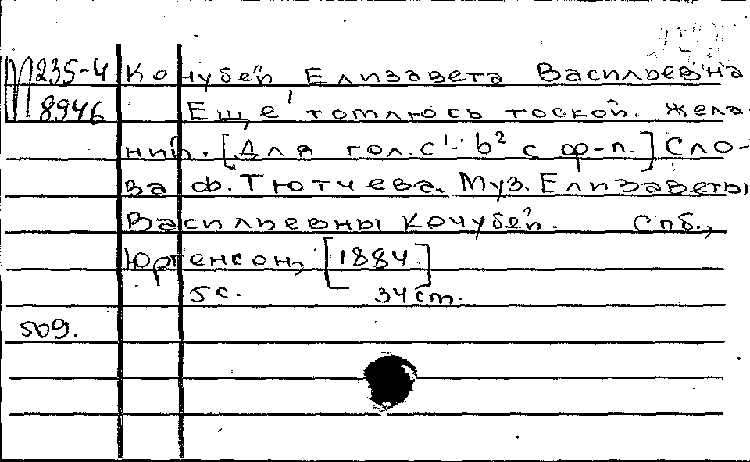 М 235-4 Кочубей Елизавета Васильевна
8946 Еще томлюсь тоской жела
ний. [Для гол. c¹-b² с ф-п.] Сло-
ва Ф. Тютчева. Муз. Елизаветы
Васильевны Кочубей. Спб.,
Юргенсон, [1884]
5 с. 34 см.
509.